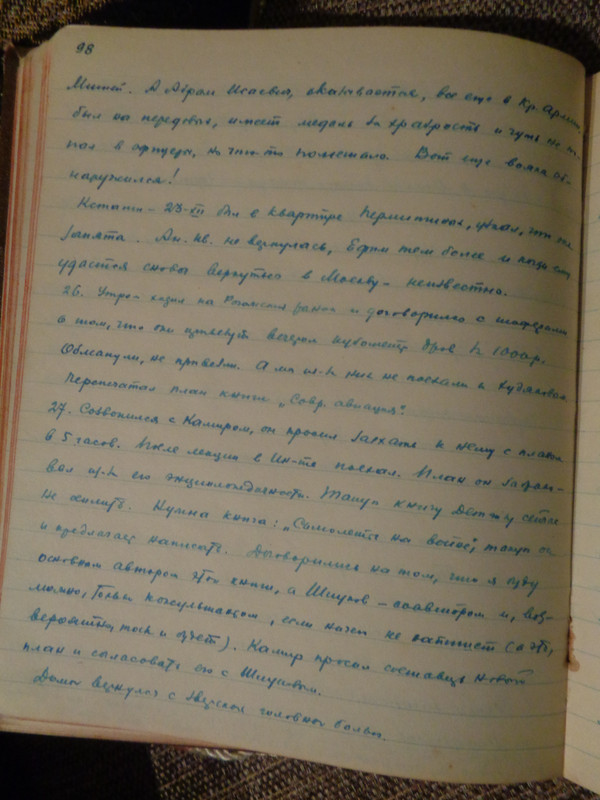 98
Минск. А Абрам Исаевич, оказывается, все еще в Кр. армии,
был на передовых, имеет медаль за храбрость и чуть не по-
пал в офицеры, но что-то помешало. Вот еще вояка об-
наружился!
Кстати – 23-XII был в квартире, узнал, что она
занята. Ан. Ив. не вернулась, Ефим тем более и когда ему
удастся снова вернуться в Москву – неизвестно.
26. Утром ходил на рынок и договорился с шоферами
о том, что они привезут вечером кубометр дров за 1000 р.
Обманули, не привезли. А мы из-за них не поехали к Худяковым
Перепечатал план книги „Совр. авиация“.
27. Созвонился с Камиром, он просил заехать к нему с планом
в 5 часов. После лекции в Ин-те поехал. План он забрако-
вал из-за его энциклопедичности. Такую книгу Детгиз сейчас
не осилит. Нужна книга: „Самолеты на войне“, такую он
и предлагает написать. Договорились на том, что я буду
основным автором этой книги, а Шиуков – соавтором и, воз-
можно, только консультантом, если ничего не напишет (а это,
вероятнее, так и будет). Камир просил составить новый
план и согласовать его с Шиуковым.
Домой вернулся с зверской головной болью.